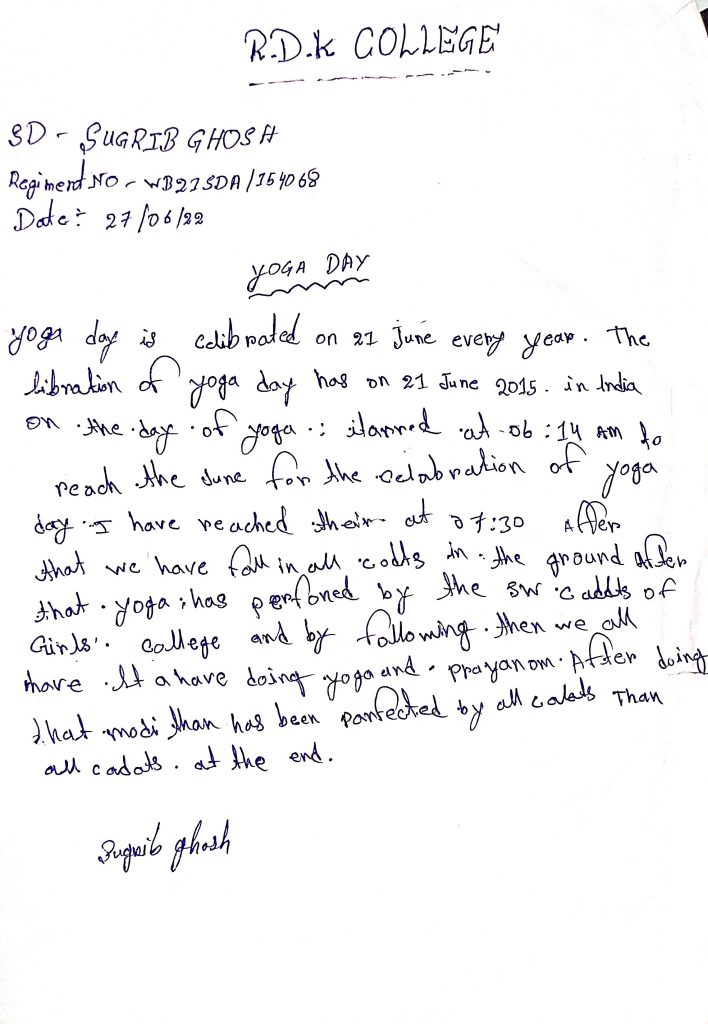 R.D.K COLLEGE
SD - SUGRIB GHOSH
Regiment NO - WB21SDA/154068
Date: 27/06/22
YOGA DAY
yoga day is celibrated on 21 June every year. The
libration of yoga day has on 21 June 2015. in India
on the day of yoga. : starred at 06:14 AM to
reach the June for the celabration of yoga
day. I have reached their at 07:30 After
that we have fall in all codts in the ground After
that yoga has perfoned by the SW caddts of
Girls' college and by following. then we all
have It a have doing yoga and prayanom. After doing
that modi than has been parfected by all cadats Than
all cadats. at the end.
Sugrib ghosh